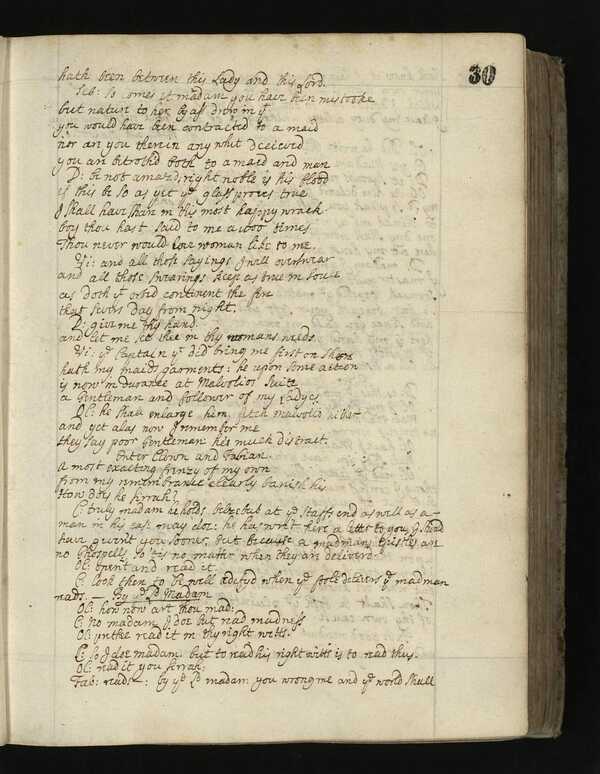 30
hath been between this Lady and this Lord.
Seb: So comes it madam you have been mistooke
but nature to her byass drew in yt
you would have been contracted to a maid
nor are you therein any whit deceived
you are betrothd both to a maid and man
D: be not amazd, right noble is his blood
if this be so as yet ye glass proves true
I shall have share in this most happy wrack
boy thou hast said to me a 1000 times
Thou never would love woman like to me.
Vi: and all those sayings I will overswear
and all those swearings keep as true in soule
as doth yt orbed continent the fire
that severs day from night.
D: give me thy hand
and let me see thee in thy womans weeds
Vi: ye Captain yt did bring me first on shore
hath my maids garments: he upon some action
is now in durance at Malvolios suite
a Gentleman and follower of my Ladys
Ol: he shall enlarge him, fetch malvolio hither
and yet alas now I remember me
they say poor Gentleman hes much distract.
Enter Clown and Fabian.
A most exacting frenzy of my own
from my remembrance clearly banish his
How does he sirrah?
C: truly madam he holds belzebub at ye staffs end as well as a
man in his case may doe: he has writt here a letter to you, I should
have given't you sooner, but because a madmans Epistles are
no Ghospells so 'tis no matter when they are deliverd.
Ol: open't and read it.
C: look then to be well edefyd when ye foole delivers ye madman
reads. — By ye Ld Madam
Ol: how now art thou mad:
C: no madam, I doe but read madness
Ol: prethe read it in thy right witts.
C: so I doe madam, but to read his right witts is to read thus.
Ol: read it you sirrah.
Fab: reads: by ye Ld madam you wrong me and ye world shall